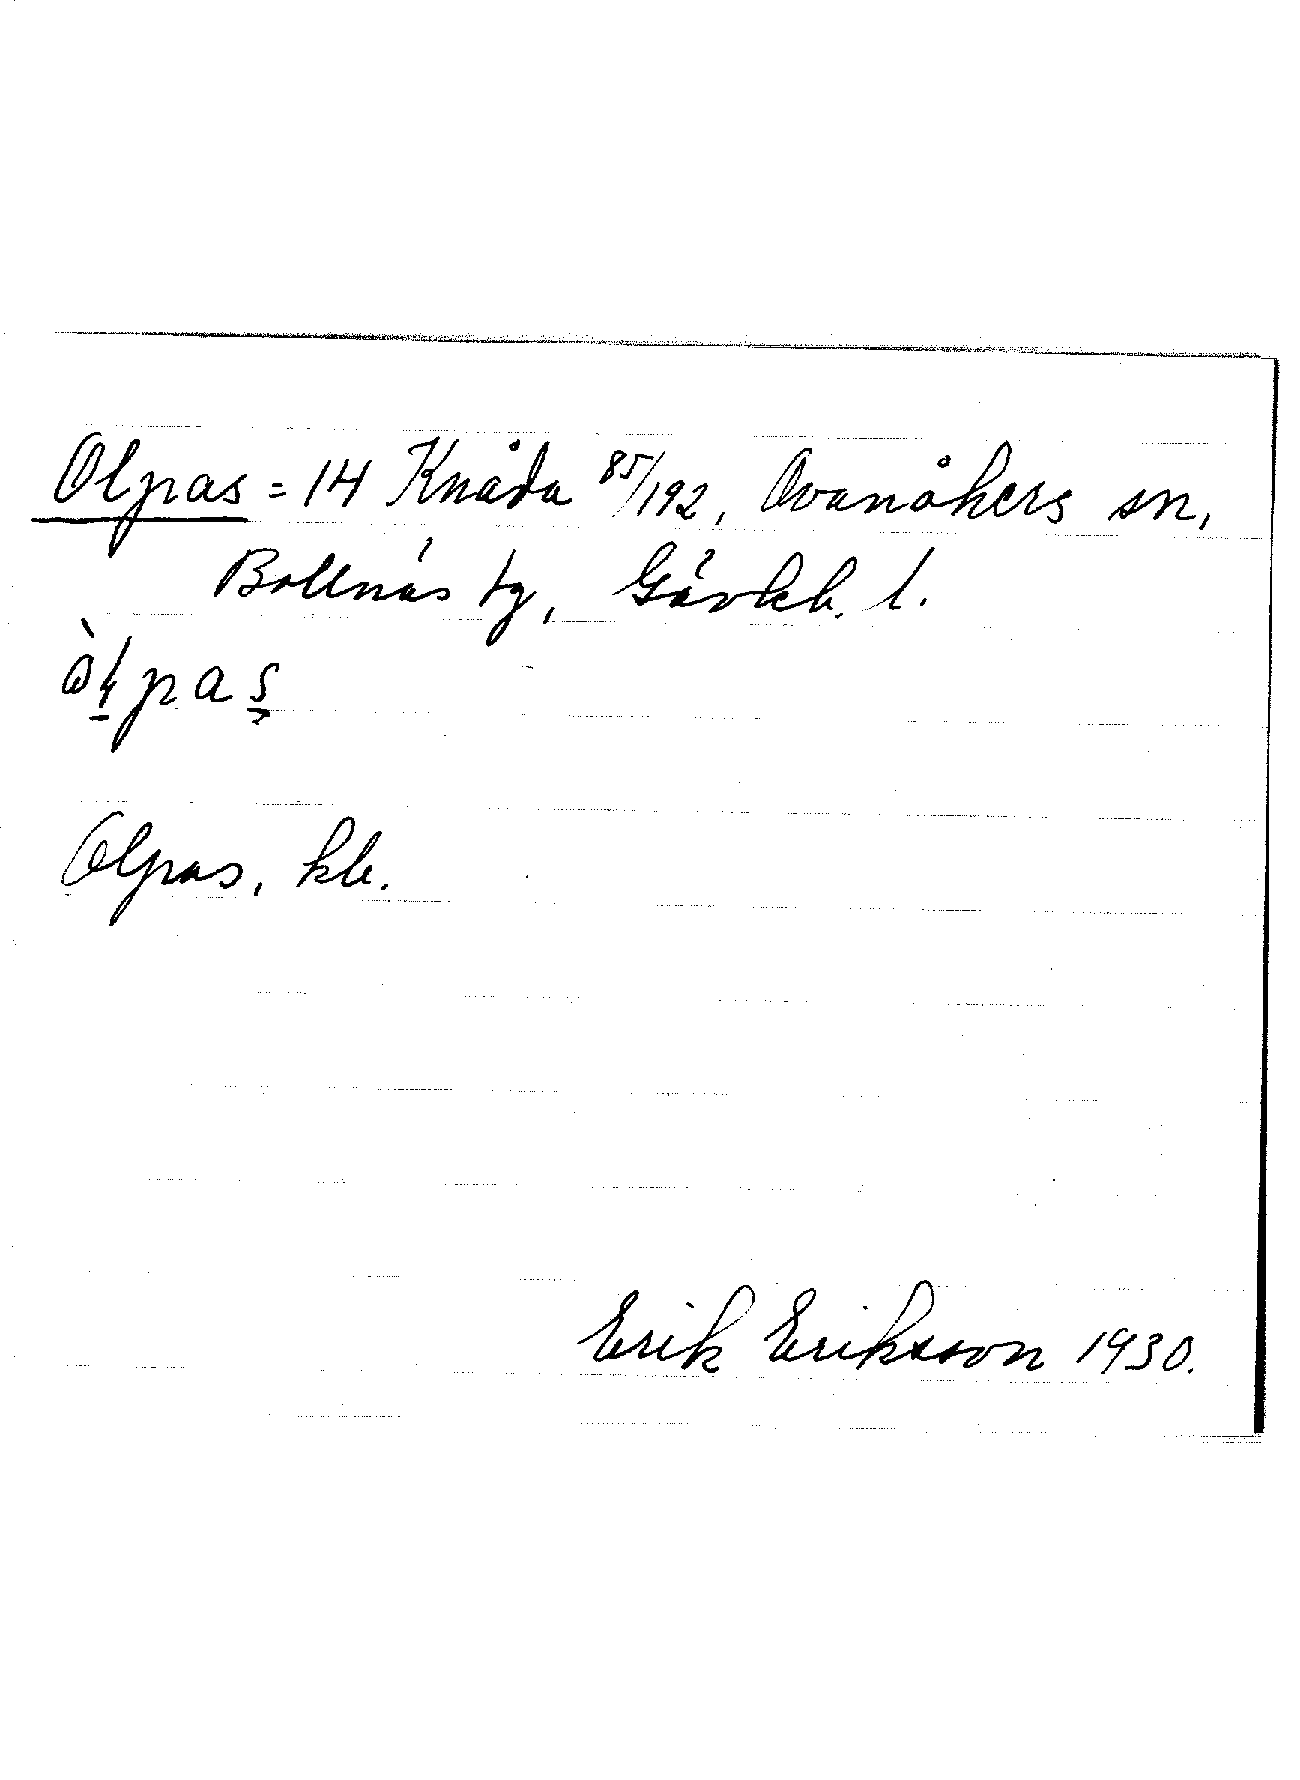 Olpas = 14 Knåda 85/192, Ovanåkers sn,
Bollnäs tg, Gävleb. l.
Olpas, kb.
Erik Eriksson 1930.